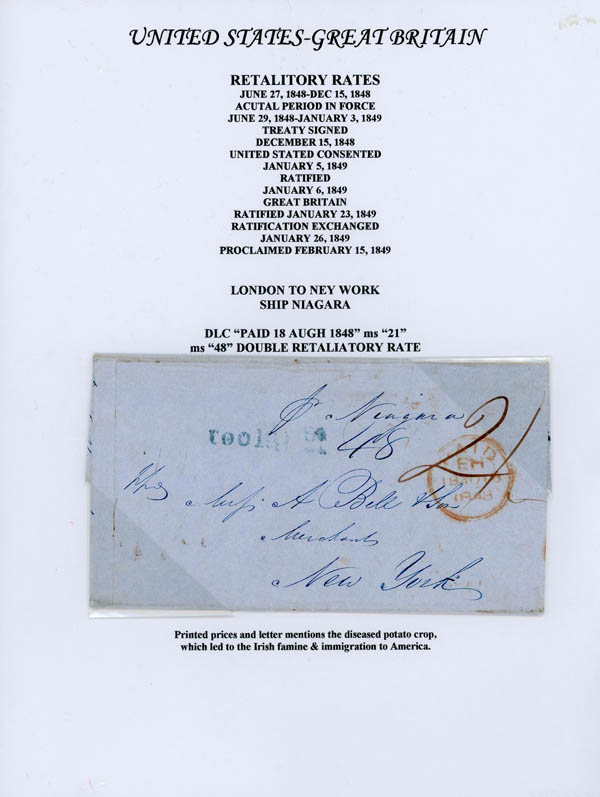 UNITED STATES-GREAT BRITAIN
RETALITORY RATES
JUNE 27, 1848-DEC 15, 1848
ACUTAL PERIOD IN FORCE
JUNE 29, 1848-JANUARY 3, 1849
TREATY SIGNED
DECEMBER 15, 1848
UNITED STATED CONSENTED
JANUARY 5, 1849
RATIFIED
JANUARY 6, 1849
GREAT BRITAIN
RATIFIED JANUARY 23, 1849
RATIFICATION EXCHANGED
JANUARY 26, 1849
PROCLAIMED FEBRUARY 15, 1849
LONDON TO NEY WORK
SHIP NIAGARA
DLC “PAID 18 AUGH 1848” ms “21”
ms “48” DOUBLE RETALIATORY RATE
Niagara
48
21
PAID
Messrs A Bell & Son
Merchants
New York
Printed prices and letter mentions the diseased potato crop,
which led to the Irish famine & immigration to America.